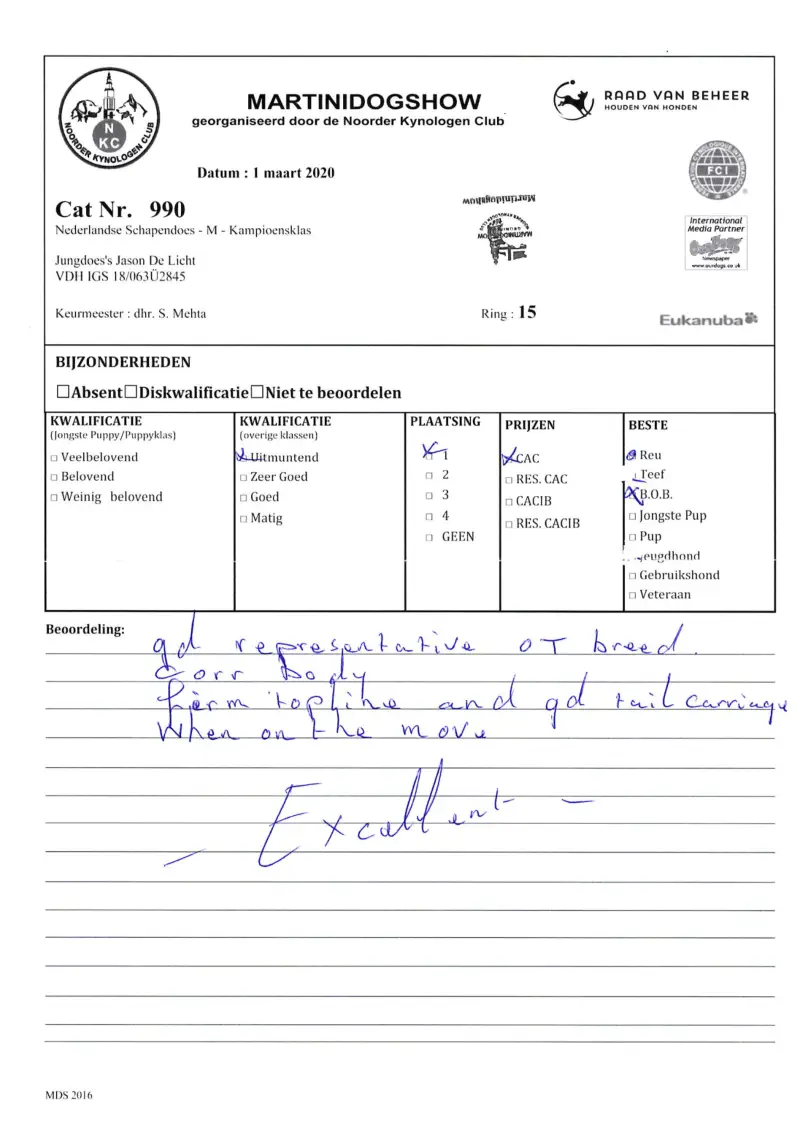 NOORDER KYNOLOGEN CLUB
NKC
MARTINIDOGSHOW
georganiseerd door de Noorder Kynologen Club
RAAD VAN BEHEER
HOUDEN VAN HONDEN
Datum : 1 maart 2020
FCI
Cat Nr. 990
Nederlandse Schapendoes - M - Kampioensklas
Martinidogshow
MARTINIDOGSHOW
International
Media Partner
Newspaper
www.ourdogs.co.uk
Jungdoes's Jason De Licht
VDH IGS 18/063Ü2845
Keurmeester : dhr. S. Mehta
Ring : 15
Eukanuba
BIJZONDERHEDEN
☐Absent☐Diskwalificatie☐Niet te beoordelen
KWALIFICATIE
(Jongste Puppy/Puppyklas)
□ Veelbelovend
□ Belovend
□ Weinig belovend
KWALIFICATIE
(overige klassen)
Uitmuntend
□ Zeer Goed
□ Goed
□ Matig
PLAATSING
1
□ 2
□ 3
□ 4
□ GEEN
PRIJZEN
CAC
□ RES. CAC
□ CACIB
□ RES. CACIB
BESTE
Reu
Teef
B.O.B.
□ Jongste Pup
□ Pup
Jeugdhond
□ Gebruikshond
□ Veteraan
Beoordeling:
gd representative OT breed.
Corr body
firm topline and gd tail carriage
When on the move
Excellent -
MDS 2016